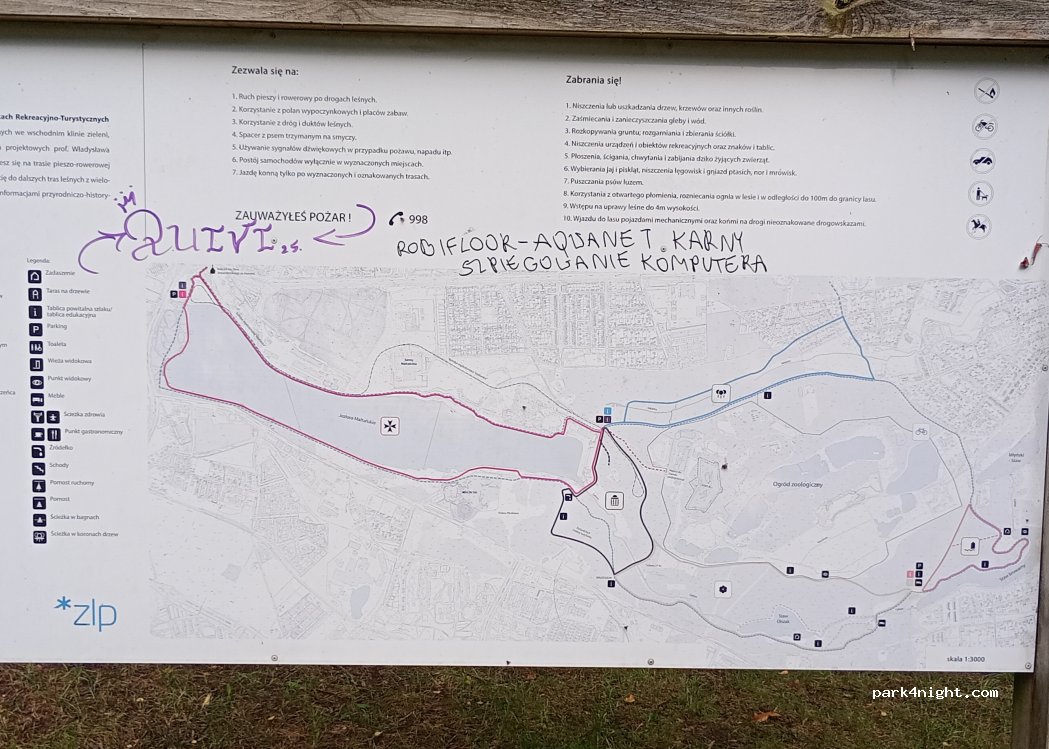 Zezwala się na:
1. Ruch pieszy i rowerowy po drogach leśnych.
2. Korzystanie z polan wypoczynkowych i placów zabaw.
3. Korzystanie z dróg i duktów leśnych.
4. Spacer z psem trzymanym na smyczy.
5. Używanie sygnałów dźwiękowych w przypadku pożawu, napadu itp.
6. Postój samochodów wyłącznie w wyznaczonych miejscach.
7. Jazdę konną tylko po wyznaczonych i oznakowanych trasach.
Zabrania się!
1. Niszczenia lub uszkadzania drzew, krzewów oraz innych roślin.
2. Zaśmiecania i zanieczyszczania gleby i wód.
3. Rozkopywania gruntu, rozgarniania i zbierania ściółki.
4. Niszczenia urządzeń i obiektów rekreacyjnych oraz znaków i tablic.
5. Płoszenia, ścigania, chwytania i zabijania dziko żyjących zwierząt.
6. Wybierania jaj i piskląt, niszczenia lęgowisk i gniazd ptasich, nor i mrówisk.
7. Puszczania psów luzem.
8. Korzystania z otwartego płomienia, rozniecania ognia w lesie i w odległości do 100m do granicy lasu.
9. Wstępu na uprawy leśne do 4m wysokości.
10. Wjazdu do lasu pojazdami mechanicznymi oraz końmi na drogi nieoznakowane drogowskazami.
ach Rekreacyjno-Turystycznych
ych we wschodnim klinie zieleni,
projektowych prof. Władysława
esz się na trasie pieszo-rowerowej
cię do dalszych tras leśnych z wielo-
nformacjami przyrodniczo-history-
ZAUWAŻYŁEŚ POŻAR !
998
QUIVI.25.
ROBIFLOOR-AQUANET.KARNY
SZPIEGOWANIE KOMPUTERA
Legenda:
Zadaszenie
Taras na drzewie
Tablica powitalna szlaku/
tablica edukacyjna
Parking
Toaleta
Wieża widokowa
Punkt widokowy
Meble
Ścieżka zdrowia
Punkt gastronomiczny
Źródełko
Schody
Pomost ruchomy
Pomost
Ścieżka w bagnach
Ścieżka w koronach drzew
Jezioro Maltańskie
Ogród zoologiczny
Młyński
Staw
Staw
Olszak
Staw Browarny
*zlp
skala 1:3000
park4night.com